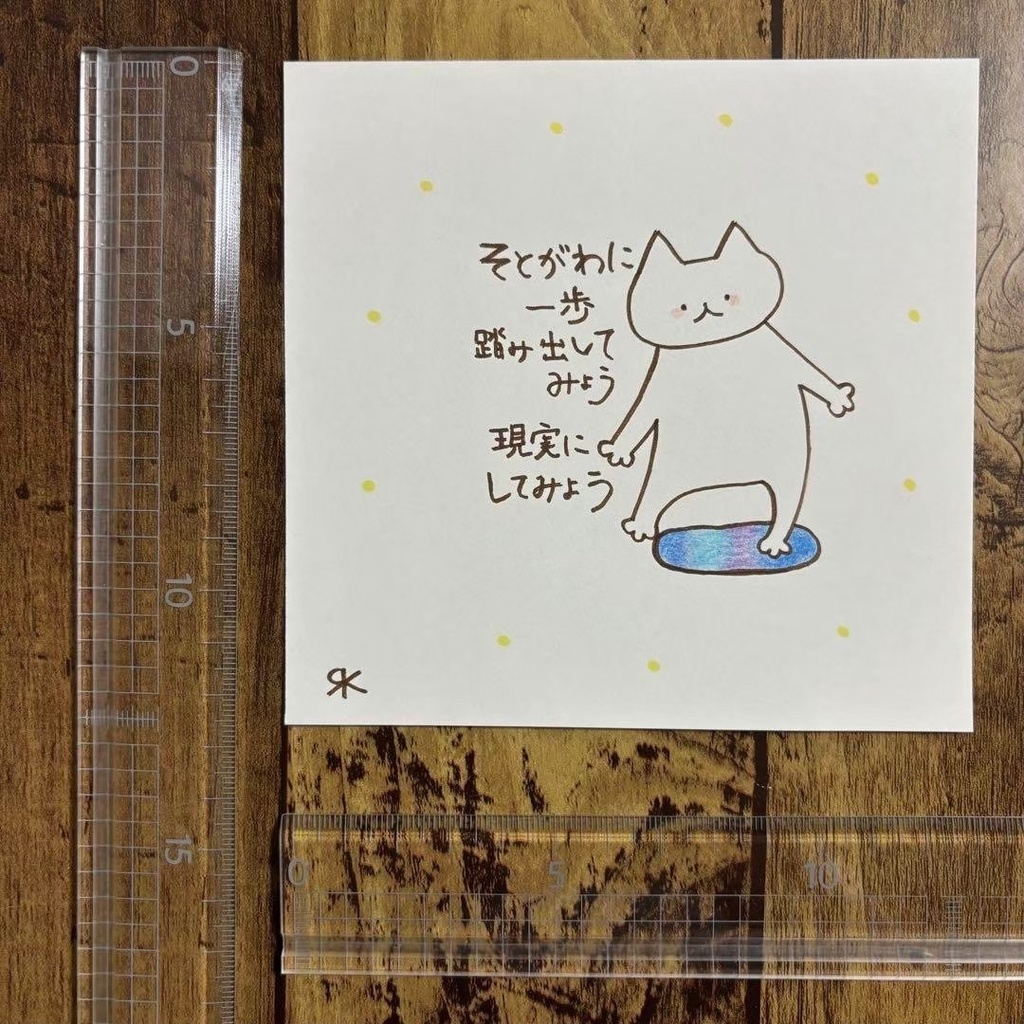 そとがわに
一歩
踏み出して
みよう
現実に
してみよう
RK
0
5
10
15
0
5
10